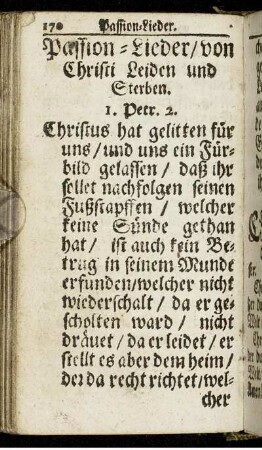 170 Passion-Lieder.
Passion-Lieder/von
Christi Leiden und
Sterben.
1. Petr. 2.
Christus hat gelitten für
uns/und uns ein Für-
bild gelassen/ daß ihr
sollet nachfolgen seinen
Fußstapffen/ welcher
keine Sünde gethan
hat/ ist auch kein Be-
trug in seinem Munde
erfunden/welcher nicht
wiederschalt/ da er ge-
scholten ward/ nicht
dräuet/ da er leidet/ er
stellt es aber dem heim/
der da recht richtet/wel-
cher